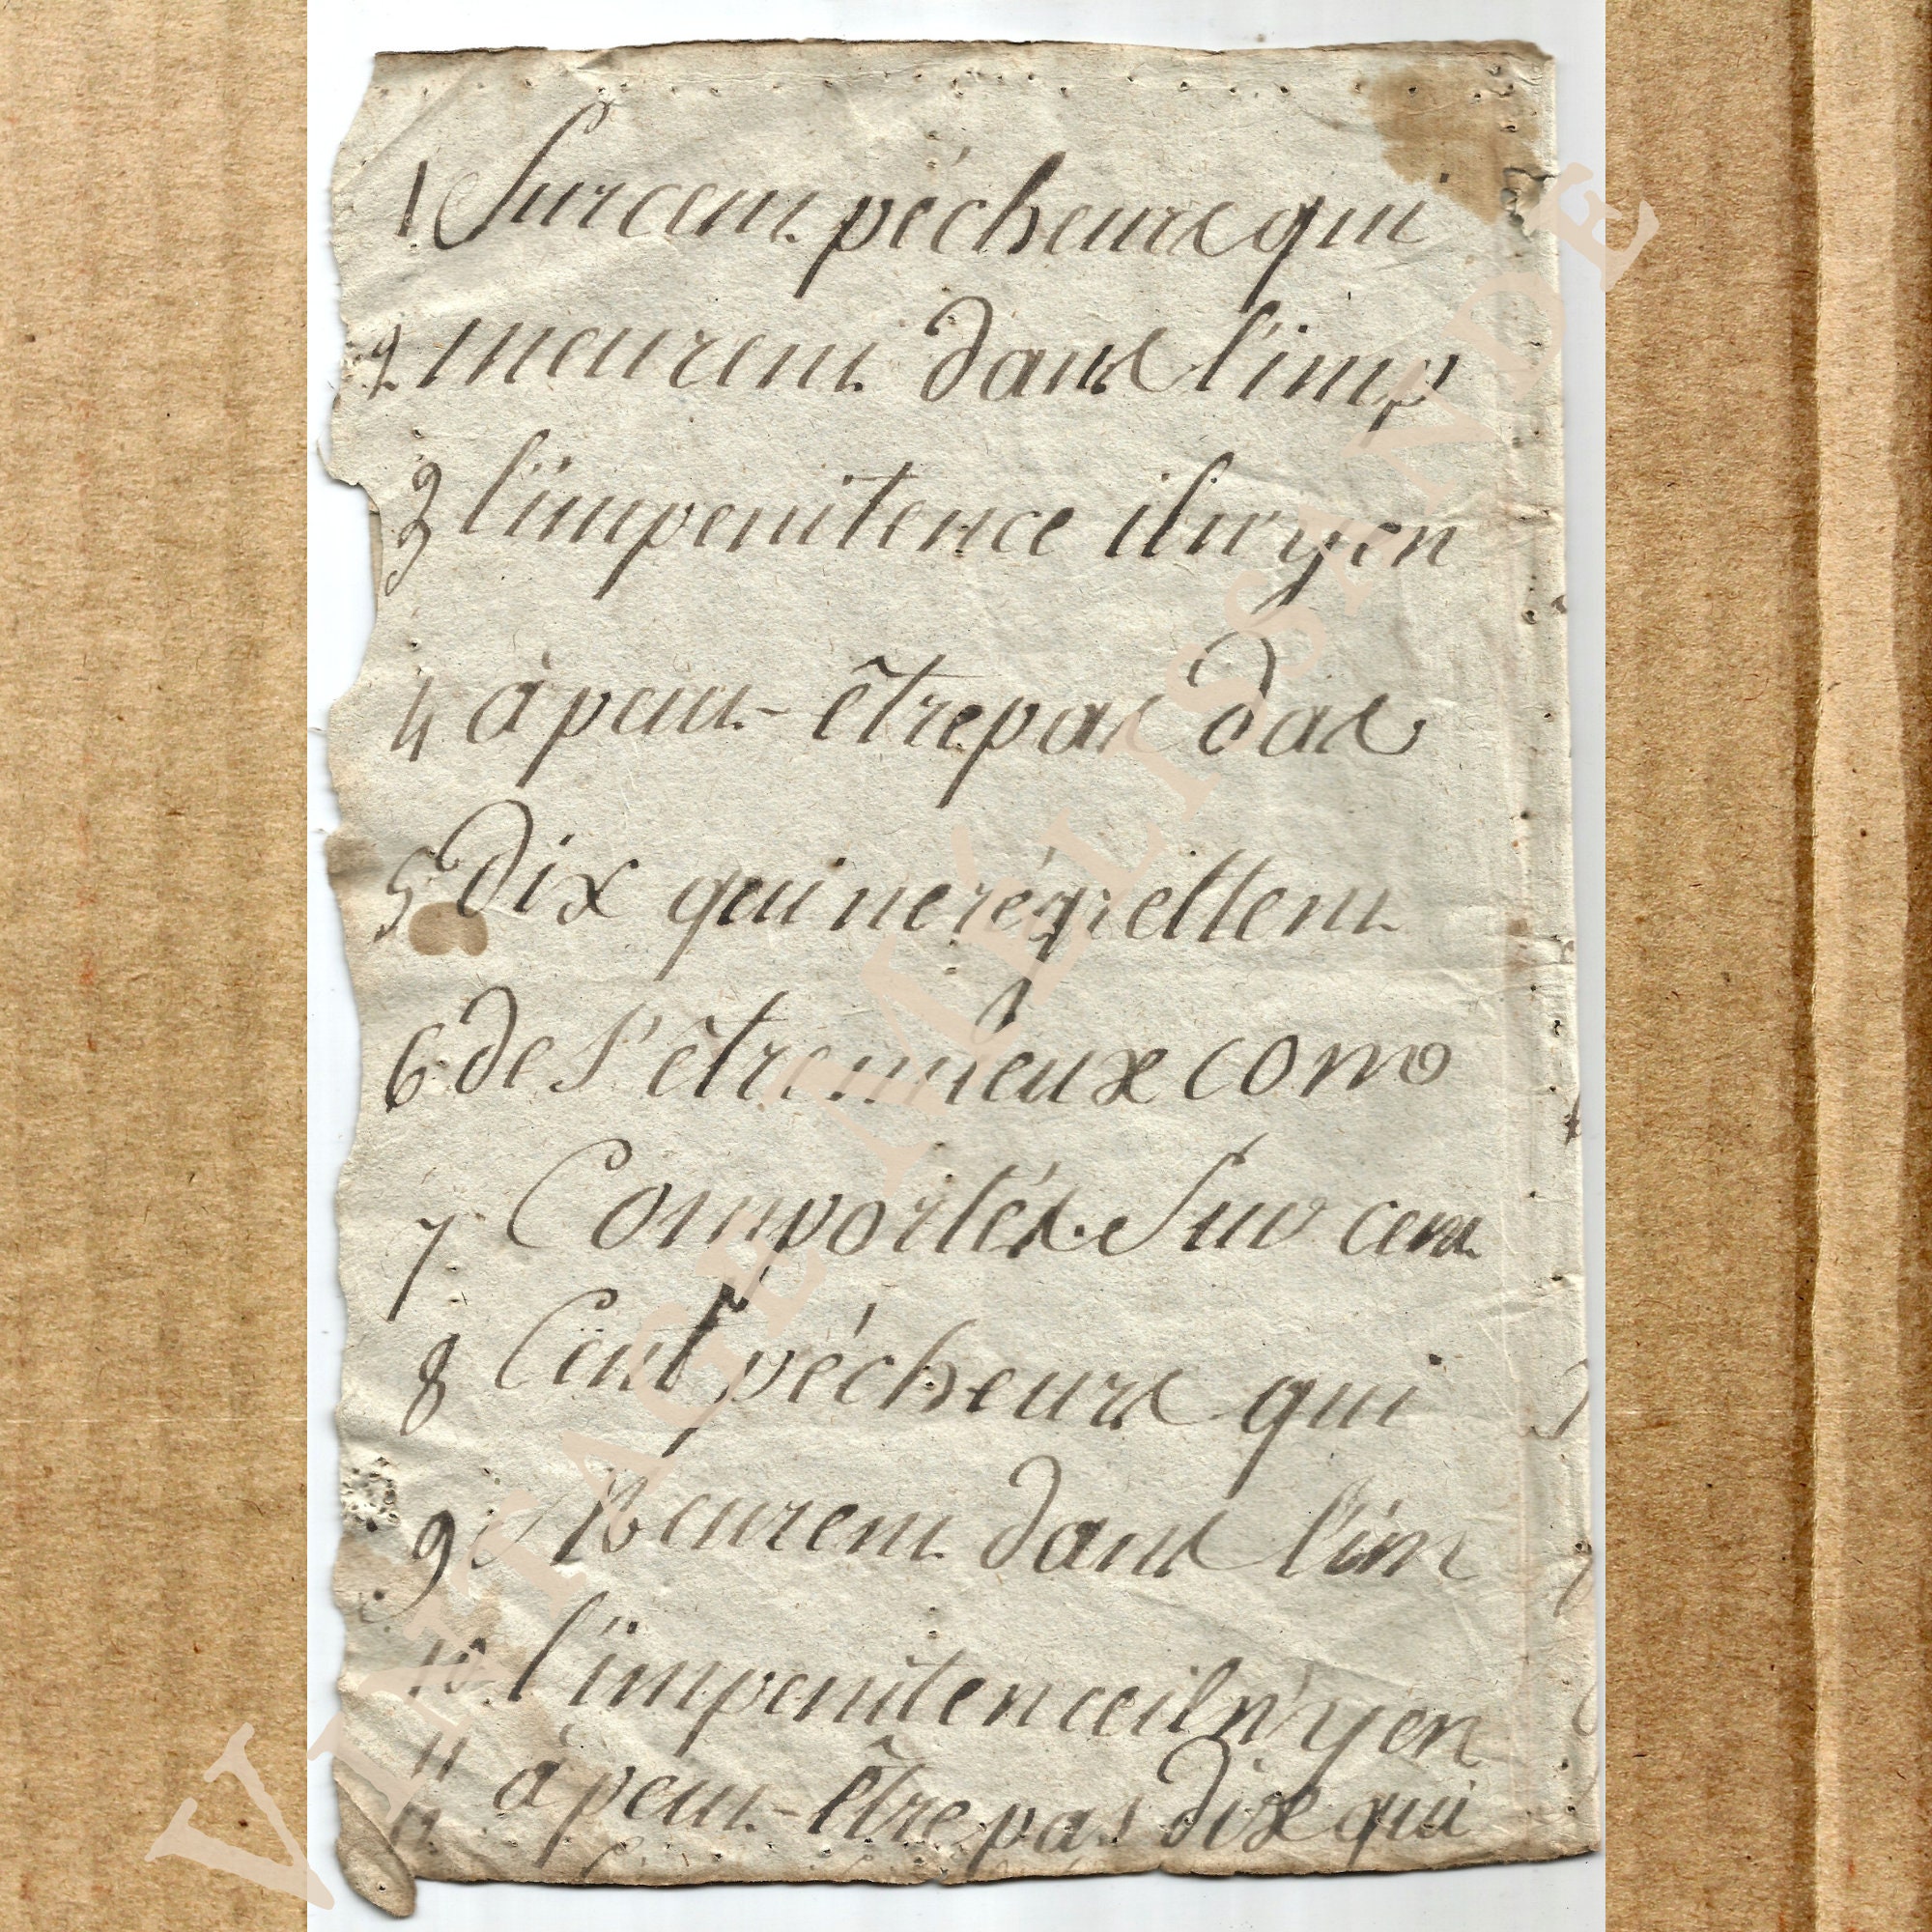 1 Sur cent pécheurs qui
2 meurent dans l'imp
3 l'impenitence il n'y en
4 à peut-être pas das
5 dix qui ne régrettent
6 de s'être mieux como
7 Comportés. Sur cent
8 Cent pécheurs qui
9 Meurent dans l'im
10 l'impenitence il n'y en
11 à peut-être pas dix qui
VINTAGE MÉLISSANDE